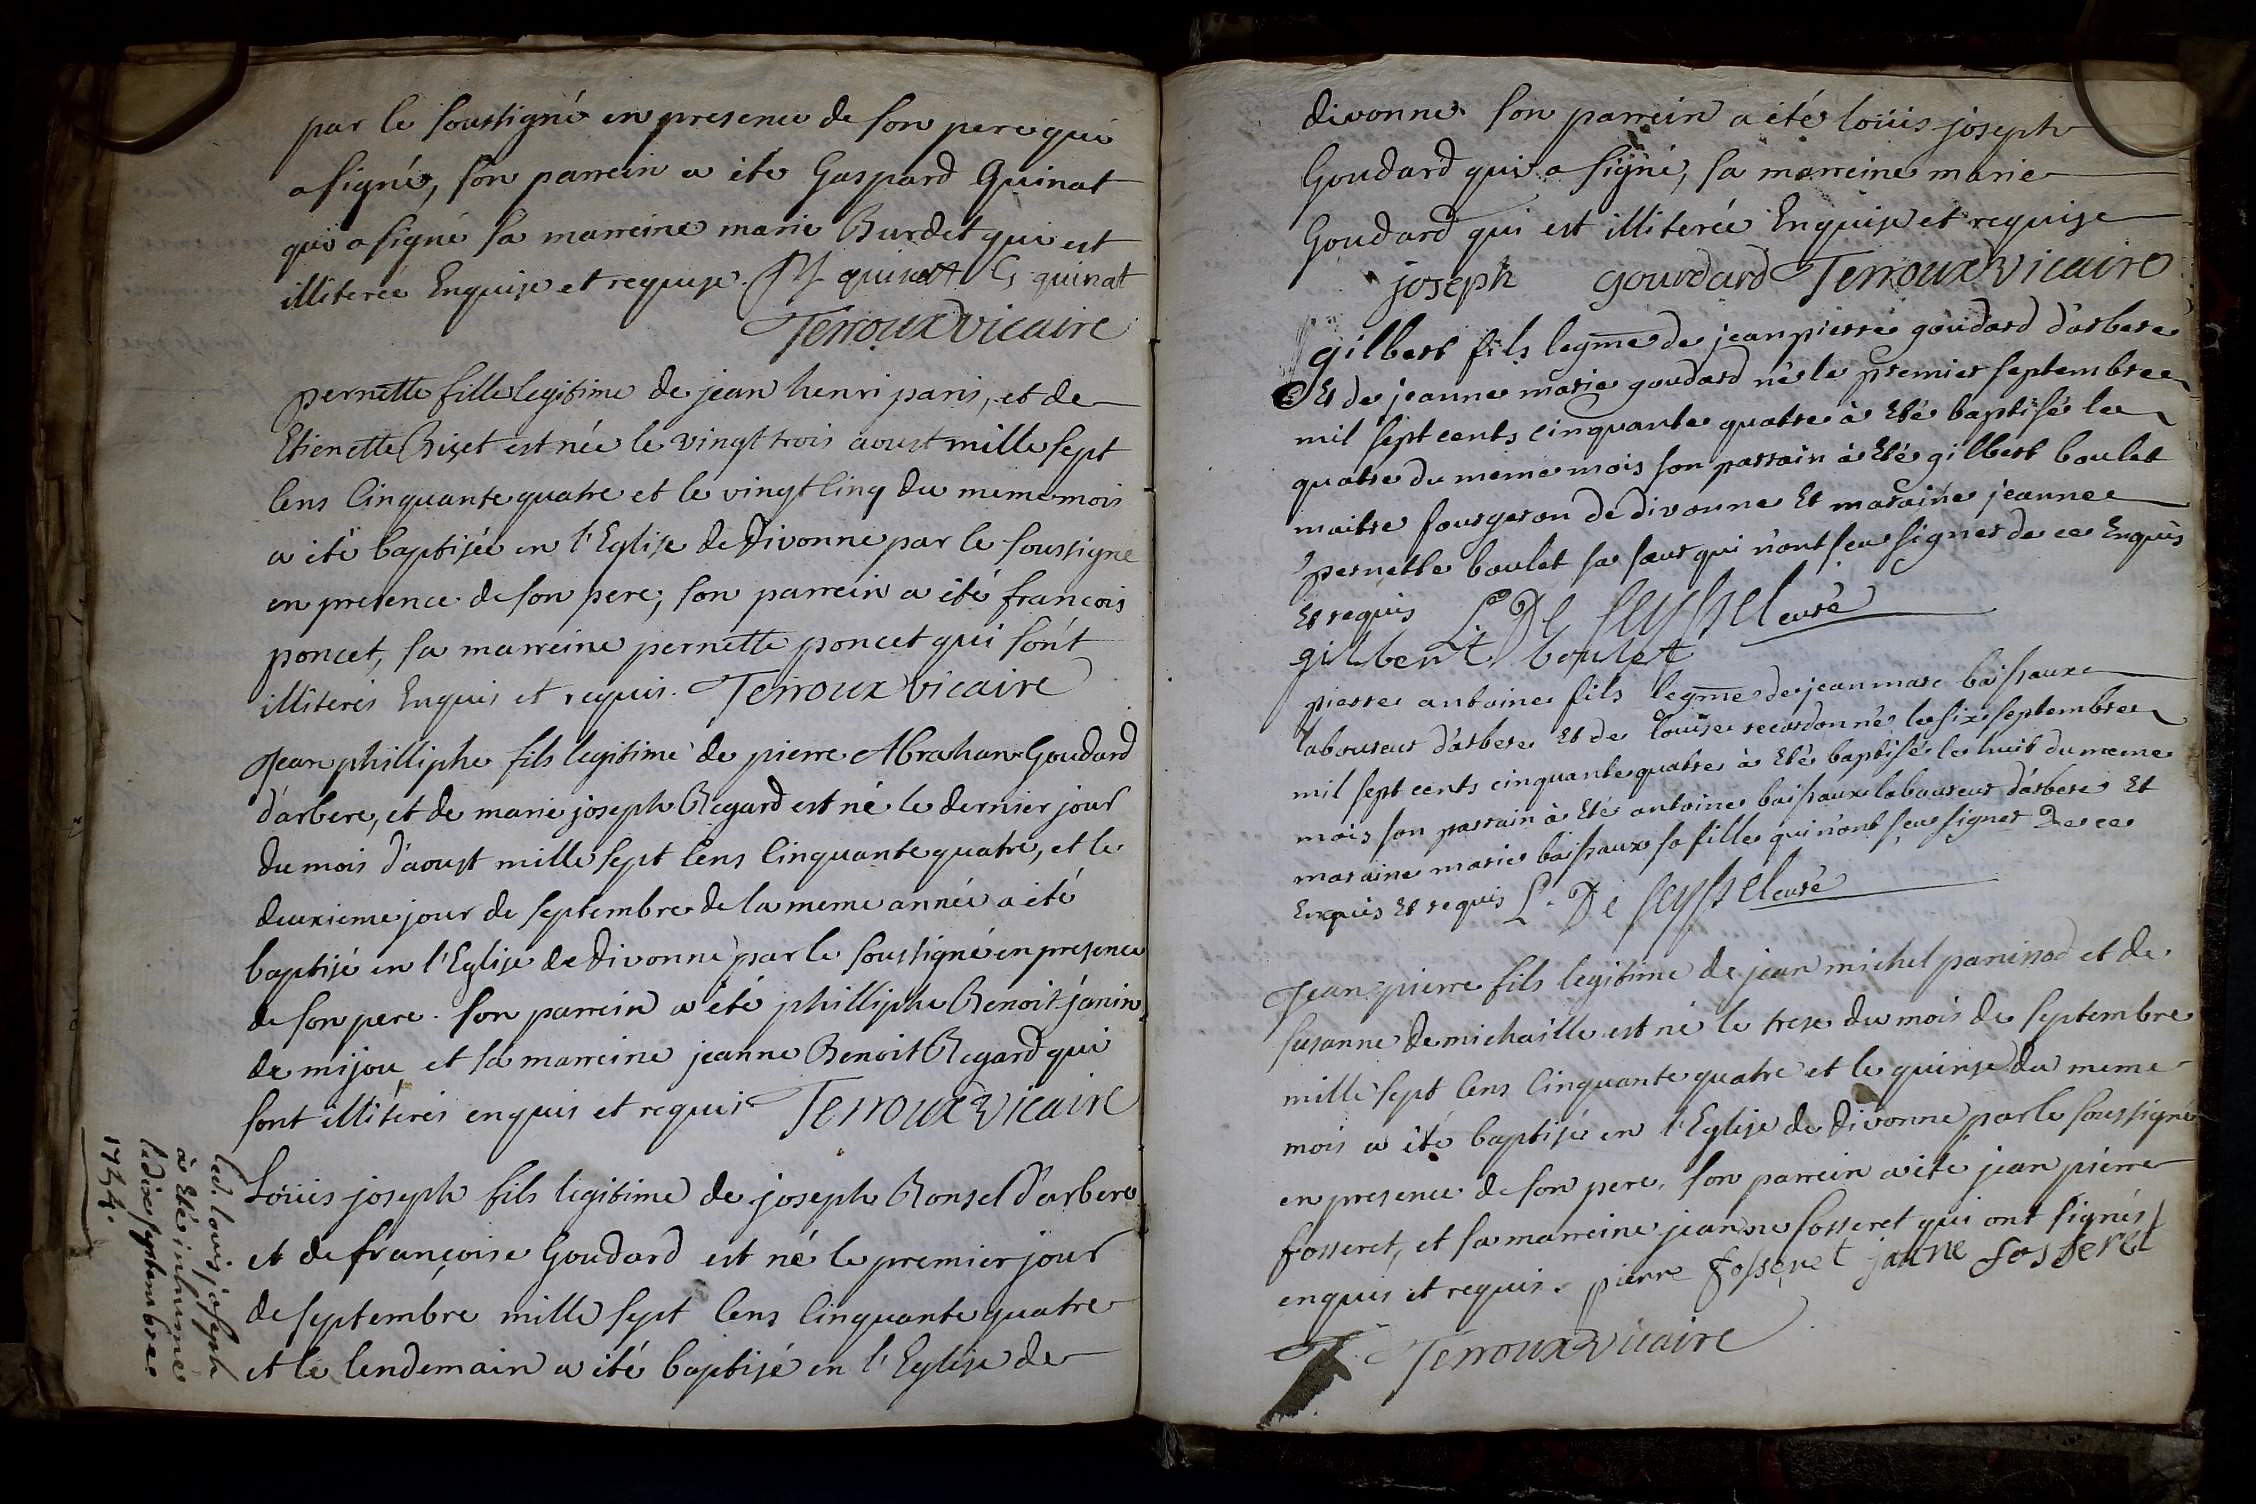 par le soussigné en presence de son pere qui
a signé, son parrein a été Gaspard Quinat
qui a signé sa marreine marie Burdet qui est
illiterée Enquise et requise. quinat G quinat
Terroux vicaire
pernette fille legitime de jean henri paris, et de
Etienette Bizet est née le vingt trois aoust mille sept
Cens Cinquante quatre et le vingt Cinq du meme mois
a été baptisée en l'Eglise de Divonne par le soussigné
en presence de son pere; son parrein a été françois
poncet, sa marreine pernette poncet qui sont
illiterés Enquis et requis. Terroux vicaire
Jean philliphe fils legitime de pierre Abraham Goudard
d'arbere, et de marie joseph Regard est né le dernier jour
du mois d'aoust mille sept Cens Cinquante quatre, et le
deuxieme jour de septembre de la meme année a été
baptisé en l'Eglise de Divonne par le soussigné en presence
de son pere. son parrein a été philliphe Benoit janin
de mijou et sa marreine jeanne Benoit Regard qui
sont illiterés enquis et requis Terroux Vicaire
Loüis joseph fils legitime de joseph Ronsel d'arbere
et de françoise Goudard est né le premier jour
de septembre mille sept Cens Cinquante quatre
et le lendemain a été baptisé en l'Eglise de
led. louis joseph
à Eté inhumé
le dix septembre
1754.
divonne son parrein a été loüis joseph
Goudard qui a signé, sa marreine marie
Goudard qui est illiterée Enquise et requise
joseph gourdard Terroux Vicaire
gilbert fils legme de jean pierre goudard d'arbere
Et de jeanne marie goudard né le premier septembre
mil sept cents cinquante quatre à Eté baptisé le
quatre du meme mois son parrain à Eté gilbert boulet
maitre fourgeron de divonne Et maraine jeanne
pernette boulet sa sœur qui n'ont sçeu signer de ce Enquis
Et requis L. De Seyssel curé
gilbert boulet
pierre antoine fils legme de jean marc baissaux
laboureur d'arbere Et de louise recordon né le six septembre
mil sept cents cinquante quatre à Eté baptisé le huit du meme
mois son parrain à Eté antoine baissaux laboureur d'arbere Et
maraine marie baissaux sa fille qui n'ont sçeu signer De ce
Enquis Et requis L. De Seyssel curé
Jean pierre fils legitime de jean michel panissod et de
susanne demichaille est né le trese du mois de septembre
mille sept Cens Cinquante quatre et le quinse du meme
mois a été baptisé en l'Eglise de Divonne par le soussigné
en presence de son pere, son parrein a été jean pierre
fosseret, et sa marreine jeanne fosseret qui ont signés
enquis et requis. pierre fosseret janne fosseret
Terroux vicaire